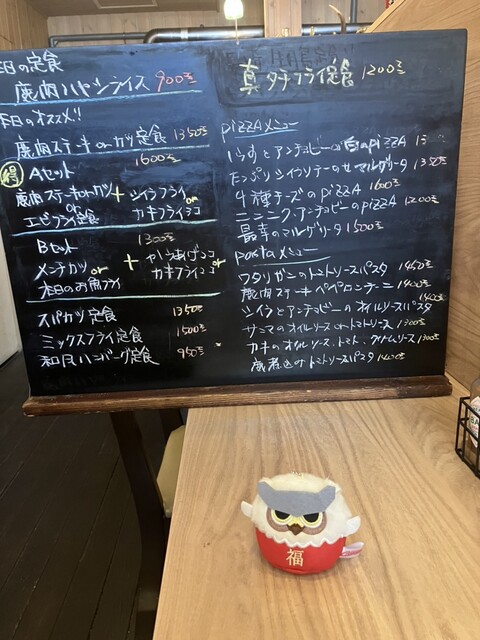 本日の定食
鹿肉ハヤシライス 900円
本日のオススメ!!
鹿肉ステーキorカツ定食 1350円
得 Aセット 1600円
鹿肉ステーキorカツ + シイラフライ
or
エビフライ定食
or
カキフライ2コ
Bセット 1300円
メンチカツ or + からあげ2コ or
本日のお魚フライ
カキフライ2コ
スパカツ定食 1350円
ミックスフライ定食 1500円
和風ハンバーグ定食 950円
真タチフライ定食 1200円
pizzAメニュー
しらすとアンチョビーの白いpizzA
たっぷりシイラソテーのせマルゲリータ 1350
4種チーズのpizzA 1600円
ニンニク、アンチョビーのpizzA 1200円
最幸のマルゲリータ 1500円
pastaメニュー
ワタリガニのトマトソースパスタ 1450円
鹿肉ステーキペペロンチーニ 1400円
シイラとアンチョビーのオイルソースパスタ 1400円
サンマのオイルソースorトマトソース 1300円
カキのオイルソース、トマト、クリームソース 1300円
鹿煮込みトマトソースパスタ 1400円
福